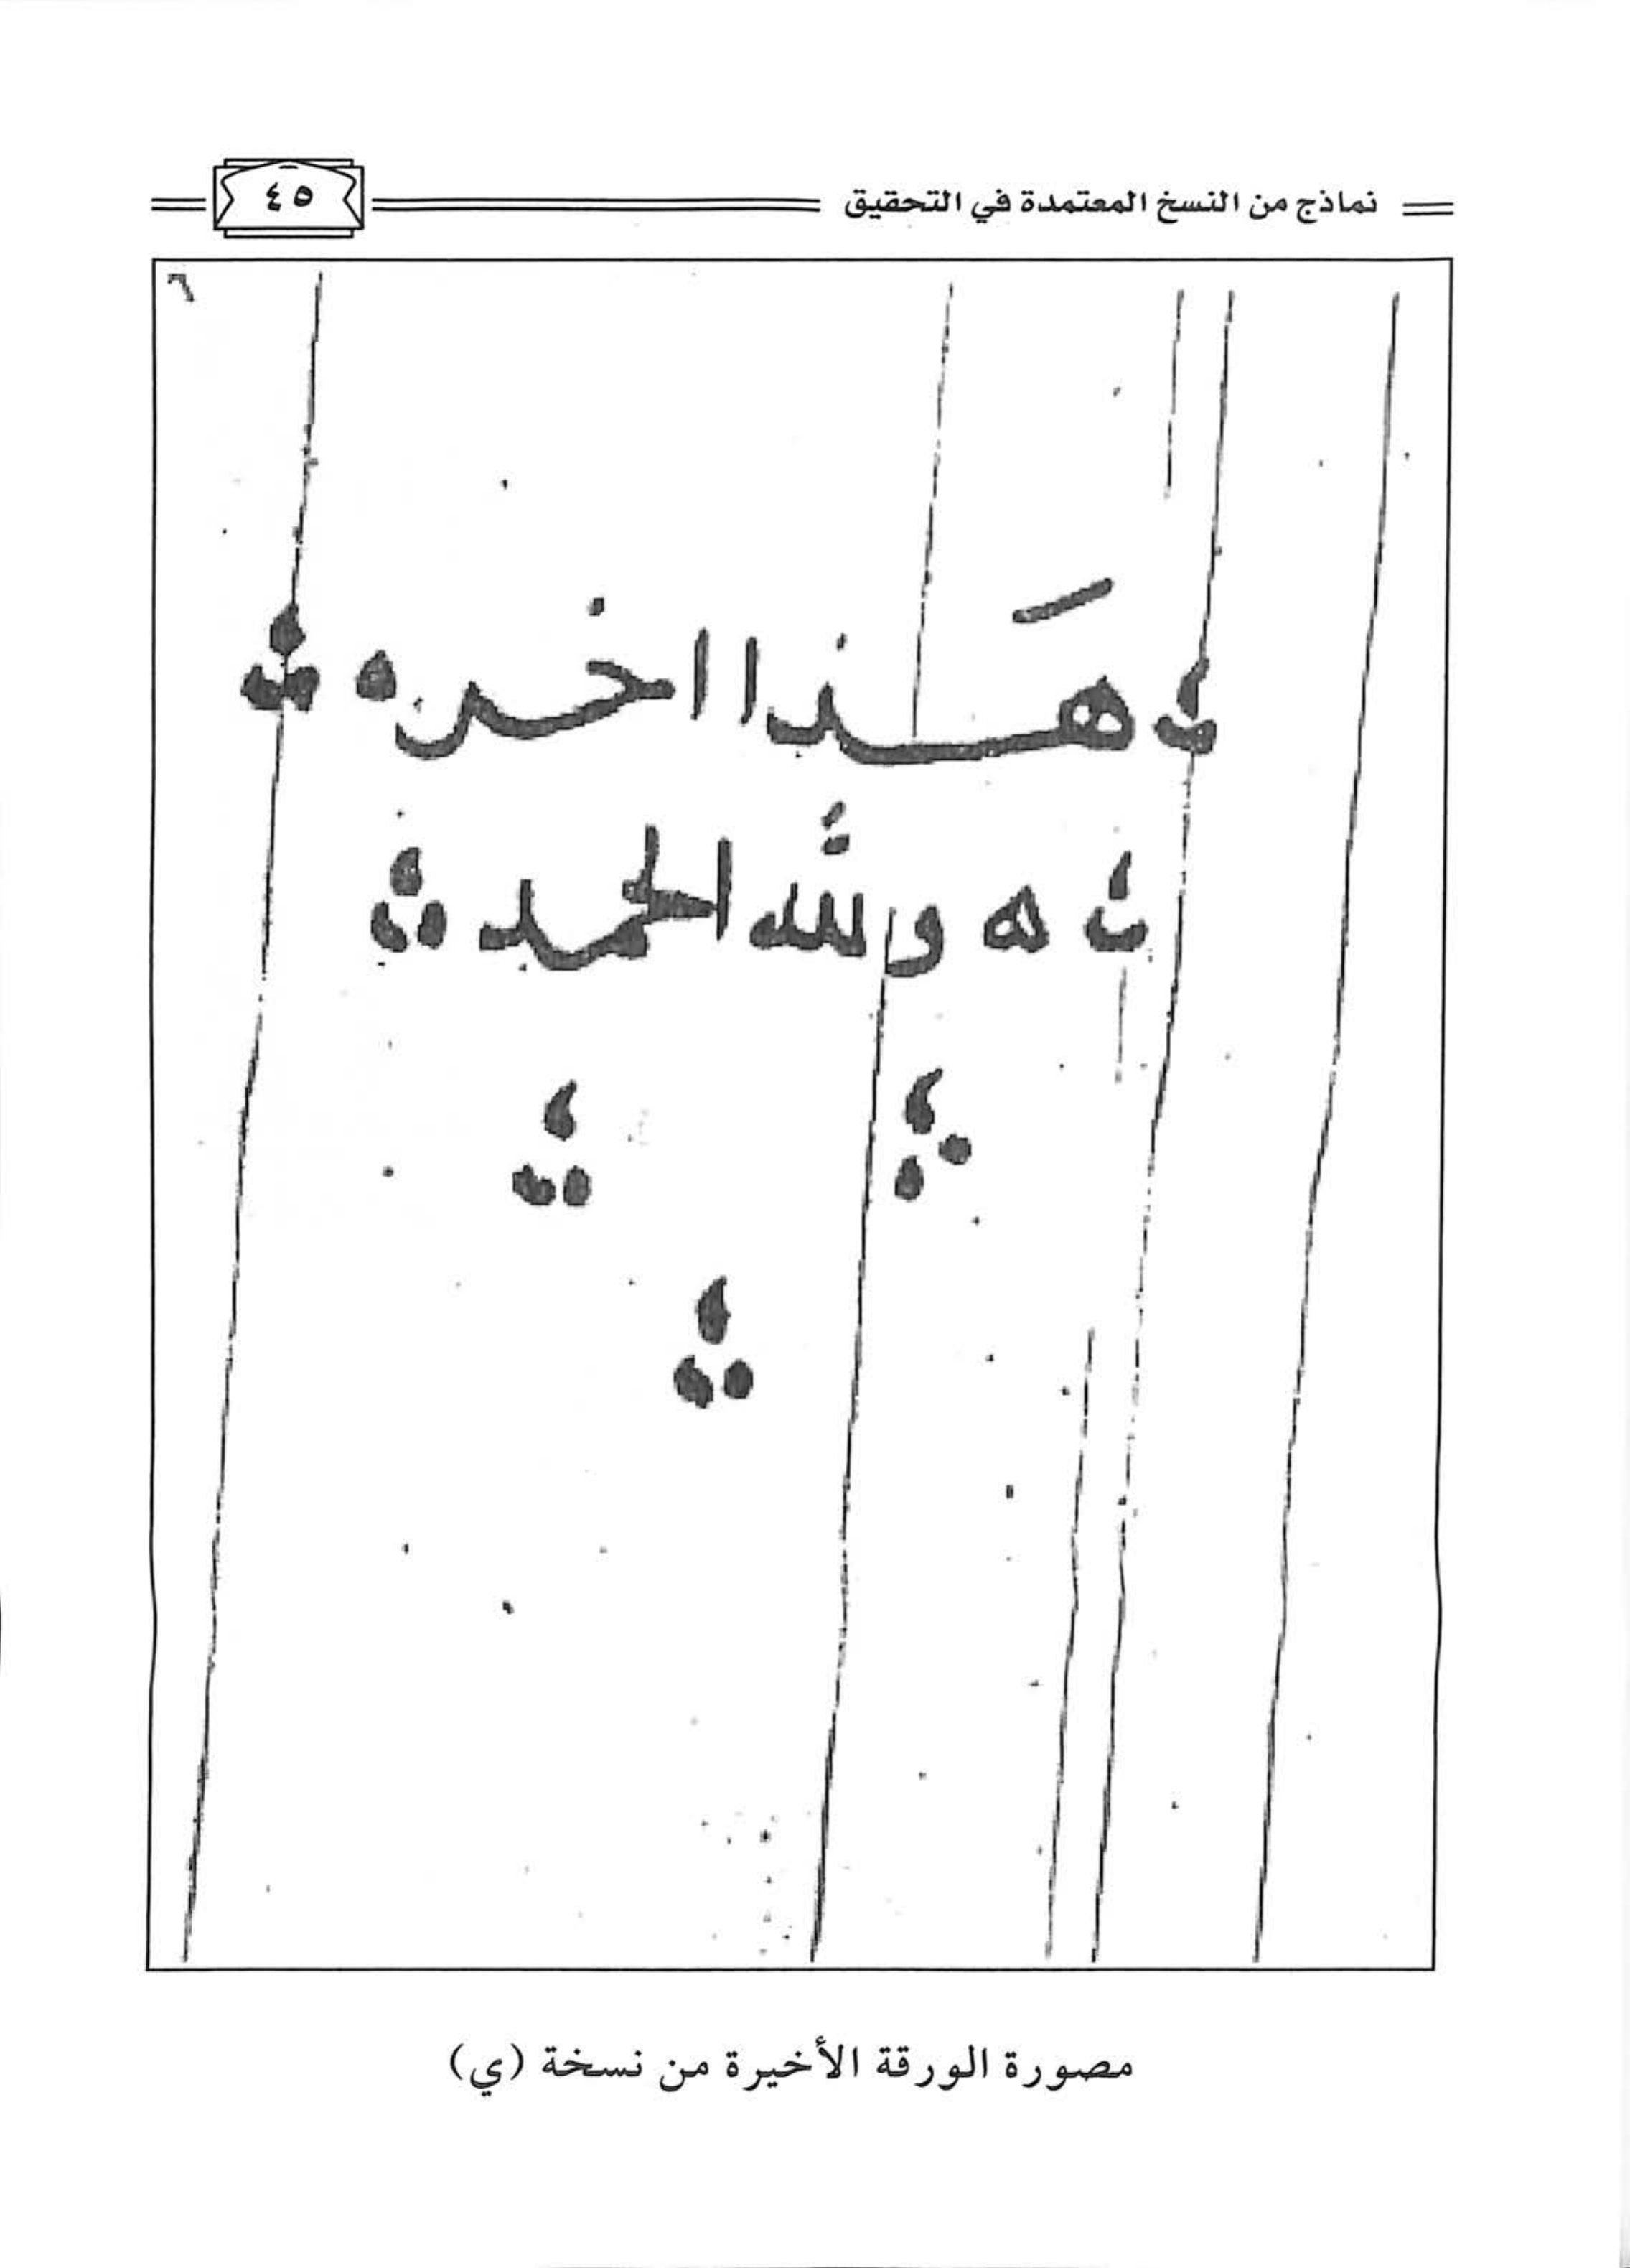 نماذج من النسخ المعتمدة في التحقيق
٤٥
٦
هَذا اخره
ه ولله الحمد
مصورة الورقة الأخيرة من نسخة (ي)